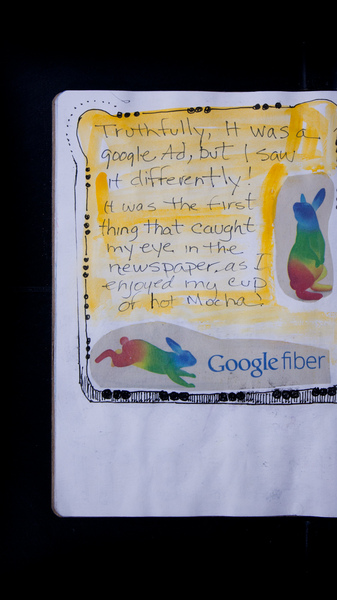 Truthfully, It was a
google Ad, but I saw
it differently!
It was the first
thing that caught
my eye in the
newspaper. as I
enjoyed my cup
or hot Mocha!
Google fiber